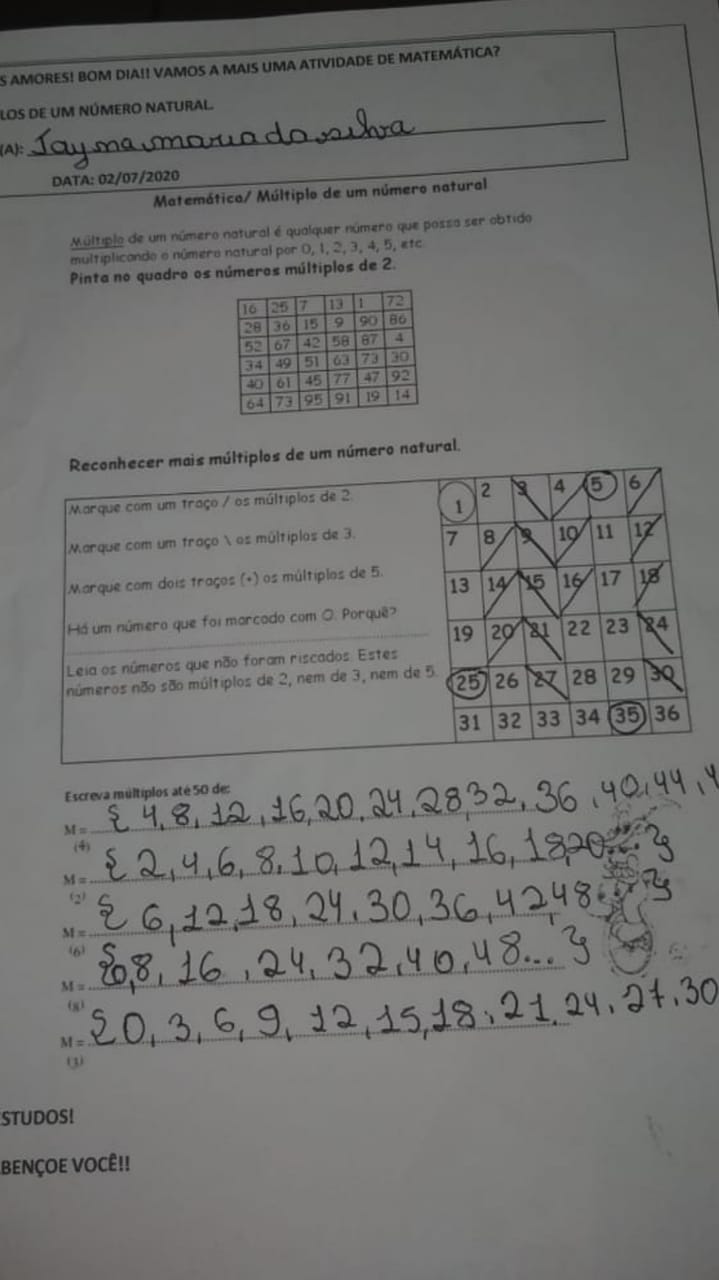 S AMORES! BOM DIA!! VAMOS A MAIS UMA ATIVIDADE DE MATEMÁTICA?
LOS DE UM NÚMERO NATURAL.
(A): Tayna maria da silva
DATA: 02/07/2020
Matemática/ Múltiplo de um número natural
Múltiplo de um número natural é qualquer número que possa ser obtido
multiplicando o número natural por 0, 1, 2, 3, 4, 5, etc.
Pinta no quadro os números múltiplos de 2.
16 25 7 13 1 72
28 36 15 9 90 86
52 67 42 58 87 4
34 49 51 63 73 30
40 61 45 77 47 92
64 73 95 91 19 14
Reconhecer mais múltiplos de um número natural.
Marque com um traço / os múltiplos de 2.
Marque com um traço \ os múltiplos de 3.
Marque com dois traços (+) os múltiplos de 5.
Há um número que foi marcado com O. Porquê?
Leia os números que não foram riscados. Estes
números não são múltiplos de 2, nem de 3, nem de 5.
1 2 3 4 5 6
7 8 9 10 11 12
13 14 15 16 17 18
19 20 21 22 23 24
25 26 27 28 29 30
31 32 33 34 35 36
Escreva múltiplos até 50 de:
M = { 4, 8, 12, 16, 20, 24, 28, 32, 36, 40, 44, 4
(4)
M = { 2, 4, 6, 8, 10, 12, 14, 16, 18, 20... }
(2)
M = { 6, 12, 18, 24, 30, 36, 42 48 }
(6)
M = { 0, 8, 16, 24, 32, 40, 48... }
(8)
M = { 0, 3, 6, 9, 12, 15, 18, 21, 24, 27, 30
(3)
STUDOS!
BENÇOE VOCÊ!!